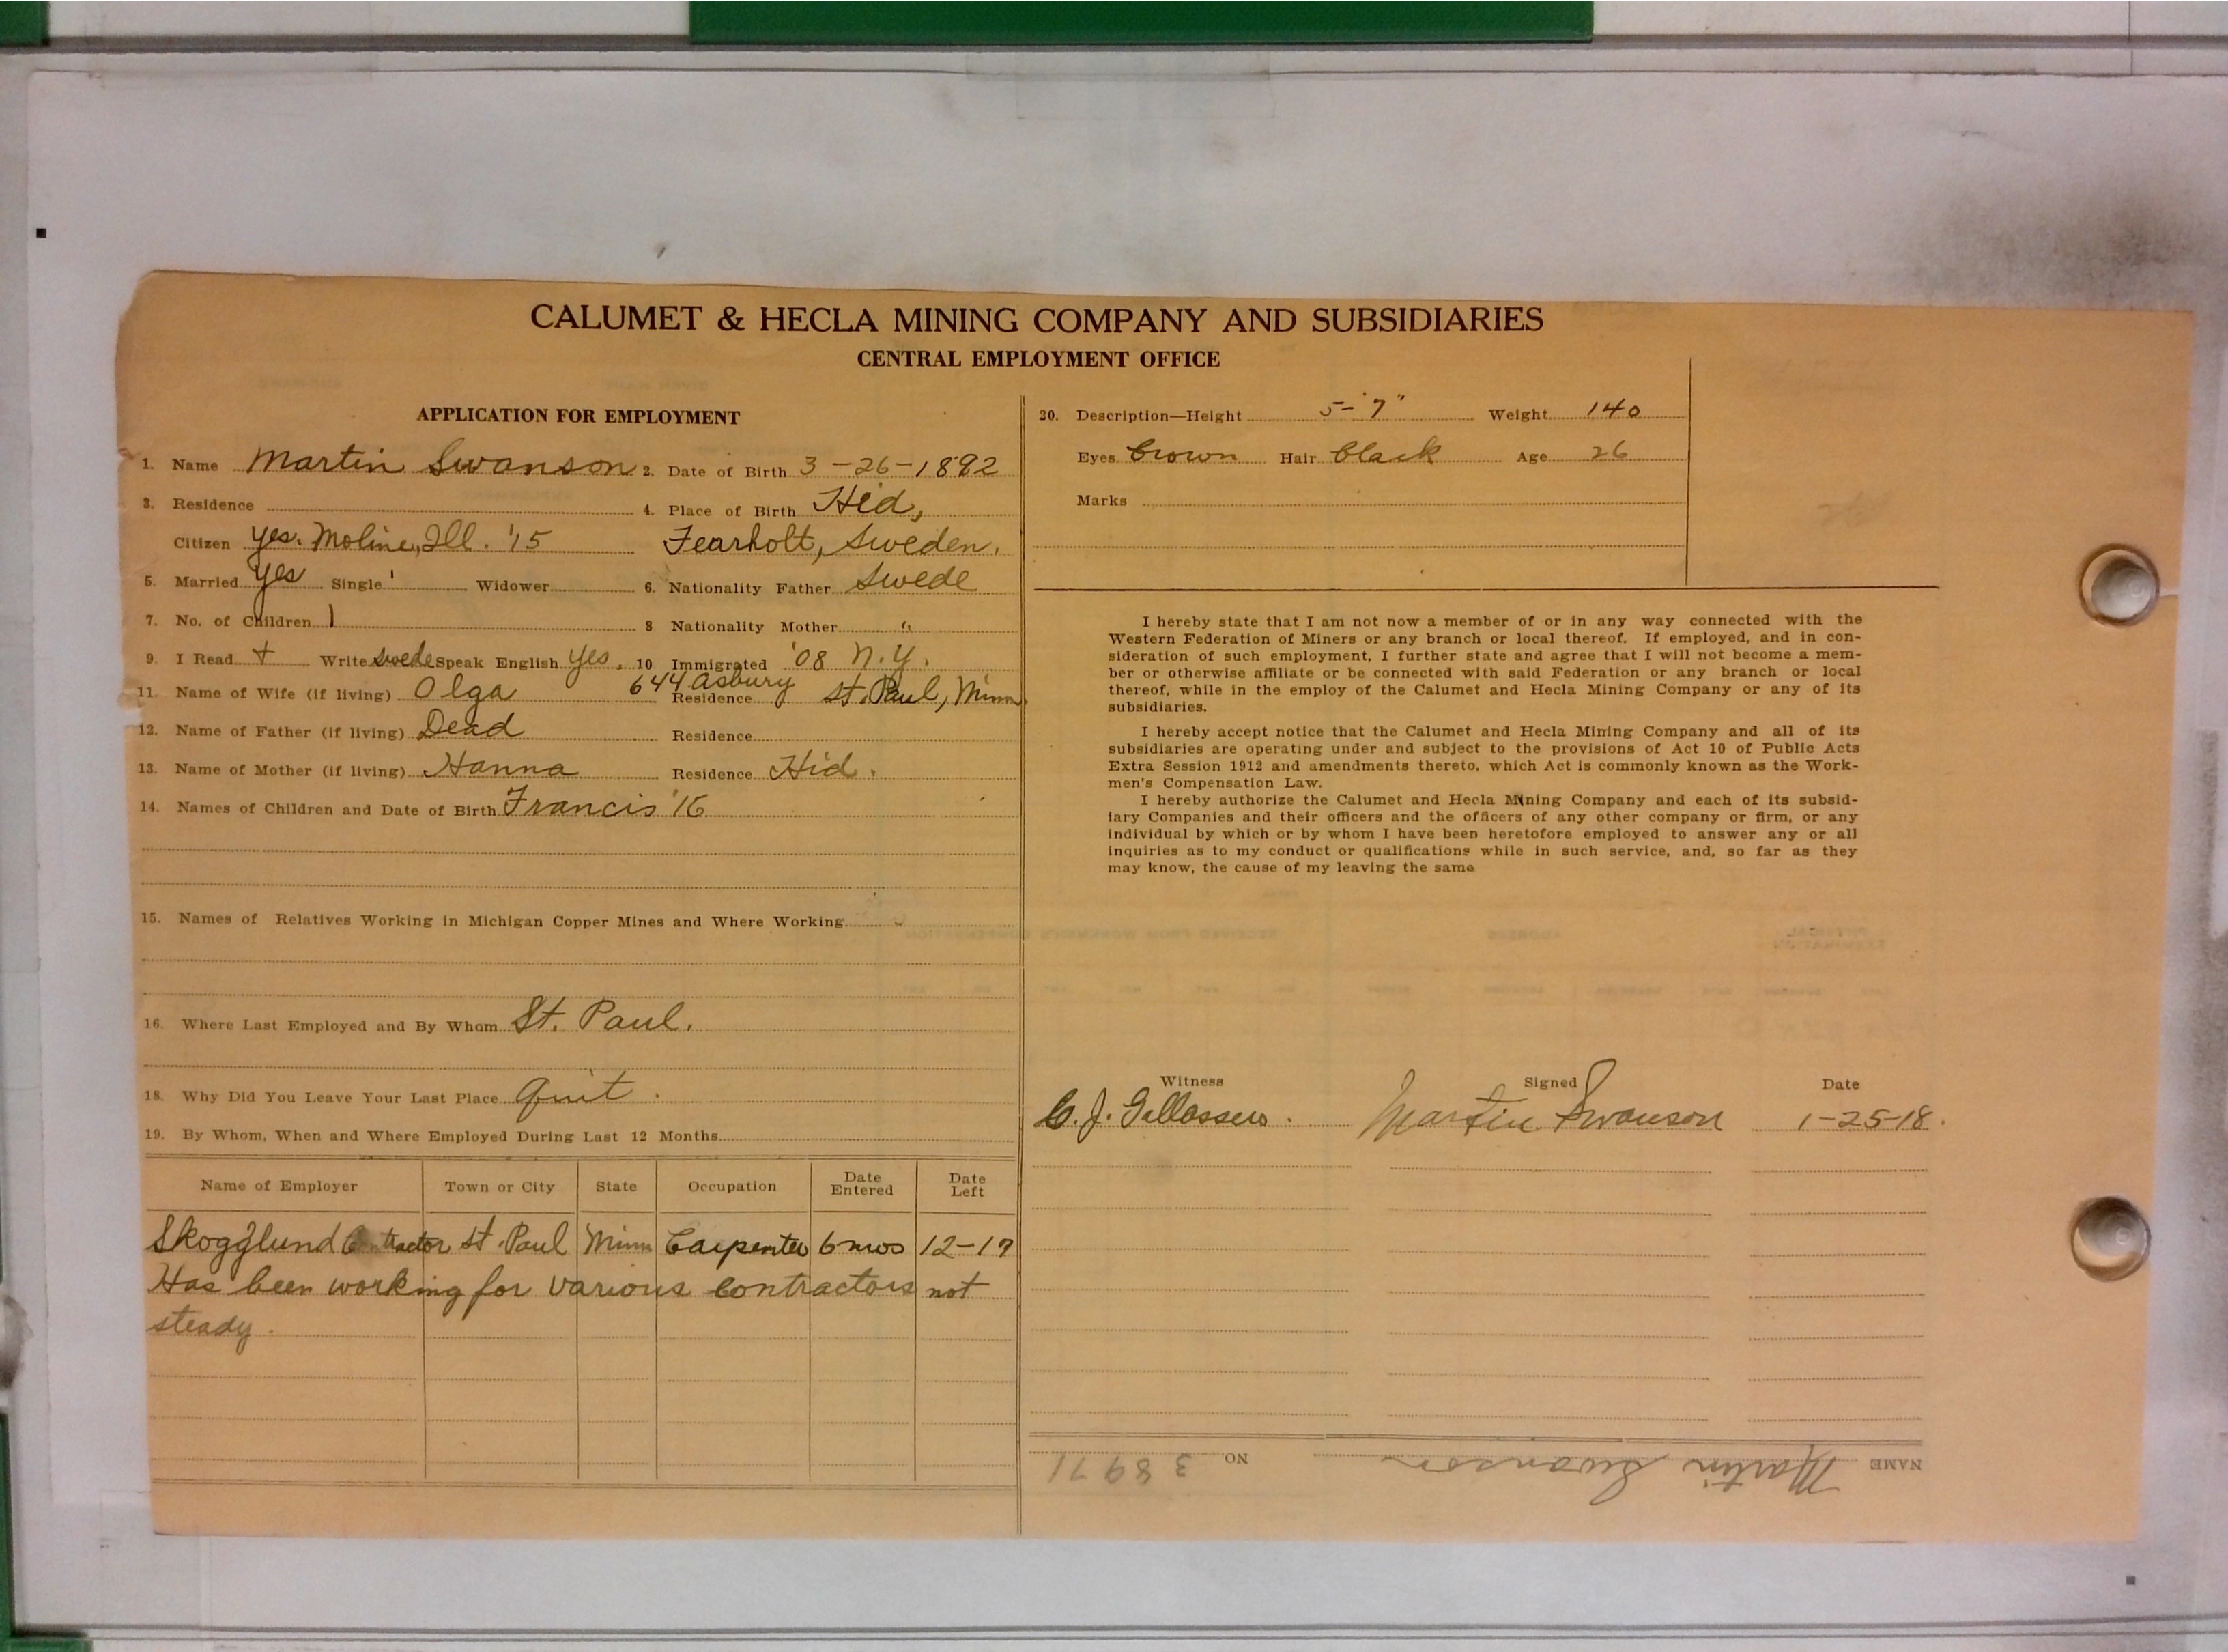 CALUMET & HECLA MINING COMPANY AND SUBSIDIARIES
CENTRAL EMPLOYMENT OFFICE
APPLICATION FOR EMPLOYMENT
1. Name Martin Swanson 2. Date of Birth 3-26-1892
3. Residence 4. Place of Birth Hid,
Citizen yes. Moline, Ill. '15 Fearholt, Sweden.
5. Married yes Single Widower 6. Nationality Father Swede
7. No. of Children 1 8 Nationality Mother "
9. I Read + Write Swede Speak English yes. 10 Immigrated '08 N.Y.
11. Name of Wife (if living) Olga Residence 644 Asbury St. Paul, Minn.
12. Name of Father (if living) Dead Residence
13. Name of Mother (if living) Hanna Residence Hid.
14. Names of Children and Date of Birth Francis '16
15. Names of Relatives Working in Michigan Copper Mines and Where Working
16. Where Last Employed and By Whom St. Paul.
18. Why Did You Leave Your Last Place quit.
19. By Whom, When and Where Employed During Last 12 Months
Name of Employer Town or City State Occupation Date Entered Date Left
Skogglund Contractor St. Paul Minn Carpenter 6 mos 12-17
Has been working for various contractors not
steady.
20. Description—Height 5-7" Weight 140
Eyes brown Hair black Age 26
Marks
I hereby state that I am not now a member of or in any way connected with the
Western Federation of Miners or any branch or local thereof. If employed, and in con-
sideration of such employment, I further state and agree that I will not become a mem-
ber or otherwise affiliate or be connected with said Federation or any branch or local
thereof, while in the employ of the Calumet and Hecla Mining Company or any of its
subsidiaries.
I hereby accept notice that the Calumet and Hecla Mining Company and all of its
subsidiaries are operating under and subject to the provisions of Act 10 of Public Acts
Extra Session 1912 and amendments thereto, which Act is commonly known as the Work-
men's Compensation Law.
I hereby authorize the Calumet and Hecla Mining Company and each of its subsid-
iary Companies and their officers and the officers of any other company or firm, or any
individual by which or by whom I have been heretofore employed to answer any or all
inquiries as to my conduct or qualifications while in such service, and, so far as they
may know, the cause of my leaving the same
Witness Signed Date
C. J. Martin Swanson 1-25-18.
NAME Martin Swanson NO. 38971